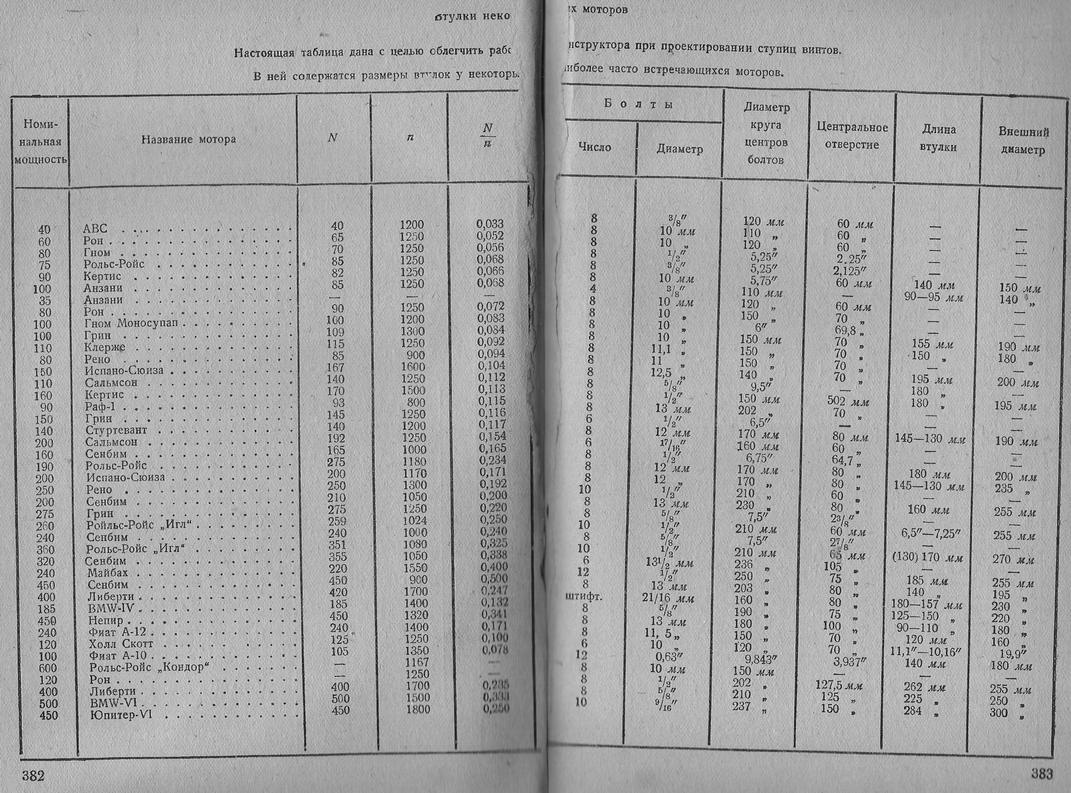 втулки неко
Настоящая таблица дана с целью облегчить рабо
В ней содержатся размеры втулок у некоторы
Номинальная мощность Название мотора N n N/n
40 АВС 40 1200 0,033
60 Рон 65 1250 0,052
80 Гном 70 1250 0,056
75 Рольс-Ройс 85 1250 0,068
90 Кертис 82 1250 0,066
100 Анзани 85 1250 0,068
35 Анзани — — —
80 Рон 90 1250 0,072
100 Гном Моносупап 100 1200 0,083
100 Грин 109 1300 0,084
110 Клерже 115 1250 0,092
80 Рено 85 900 0,094
150 Испано-Сюиза 167 1600 0,104
110 Сальмсон 140 1250 0,112
160 Кертис 170 1500 0,113
90 Раф-1 93 800 0,115
150 Грин 145 1250 0,116
140 Стуртевант 140 1200 0,117
200 Сальмсон 192 1250 0,154
160 Сенбим 165 1000 0,165
190 Рольс-Ройс 275 1180 0,234
200 Испано-Сюиза 200 1170 0,171
250 Рено 250 1300 0,192
200 Сенбим 210 1050 0,200
275 Грин 275 1250 0,220
260 Ройльс-Ройс „Игл“ 259 1024 0,250
240 Сенбим 240 1000 0,240
360 Рольс-Ройс „Игл“ 351 1080 0,325
320 Сенбим 355 1050 0,338
240 Майбах 220 1550 0,400
450 Сенбим 450 900 0,500
400 Либерти 420 1700 0,247
185 BMW-IV 185 1400 0,132
450 Непир 450 1320 0,341
240 Фиат А-12 240 1400 0,171
120 Холл Скотт 125 1250 0,100
100 Фиат А-10 105 1350 0,078
600 Рольс-Ройс „Кондор“ — 1167 —
120 Рон — 1250 —
400 Либерти 400 1700 0,235
500 BMW-VI 500 1500 0,333
450 Юпитер-VI 450 1800 0,250
382
х моторов
нструктора при проектировании ступиц винтов.
иболее часто встречающихся моторов.
Болты Диаметр круга центров болтов Центральное отверстие Длина втулки Внешний диаметр
Число Диаметр
8 3/8″ 120 мм 60 мм — —
8 10 мм 110 „ 60 „ — —
8 10 „ 120 „ 60 „ — —
8 1/2″ 5,25″ 2.25″ — —
8 3/8″ 5,25″ 2,125″ — —
8 10 мм 5,75″ 60 мм 140 мм 150 мм
4 3/8″ 110 мм — 90—95 мм 140 „
8 10 мм 120 „ 60 мм — —
8 10 „ 150 „ 70 „ — —
8 10 „ 6″ 69,8 „ — —
8 10 „ 150 мм 70 „ 155 мм 190 мм
8 11,1 „ 150 „ 70 „ 150 „ 180 „
8 11 „ 150 „ 70 „ — —
8 12,5 „ 140 „ 70 „ 195 мм 200 мм
8 5/8″ 9,5″ 180 „
8 1/2″ 150 мм 502 мм 180 „ 195 мм
8 13 мм 202 „ 70 „ — —
6 1/2″ 6,5″ — — —
8 12 мм 170 мм 80 мм 145—130 мм 190 мм
6 17/16″ 160 мм 60 „ — —
8 1/2″ 6,75″ 64,7 „ — —
8 12 мм 170 мм 80 „ 180 мм 200 мм
8 12 „ 170 „ 80 „ 145—130 мм 235 „
10 1/2″ 210 „ 60 „ — —
8 13 мм 230 „ 80 „ 160 мм 255 мм
8 5/8″ 7,5″ 2 3/8″ — —
10 1/2″ 210 мм 60 мм 6,5″—7,25″ 255 мм
8 5/8″ 7,5″ 2 7/8″ — —
10 1/2″ 210 мм 65 мм (130) 170 мм 270 мм
6 13 1/2 мм 236 „ 105 „ — —
12 1/2″ 250 „ 75 „ 185 мм 255 мм
8 13 мм 203 „ 80 „ 140 „ 195 „
штифт. 21/16 мм 160 „ 80 „ 180—157 мм 230 „
8 5/8″ 190 „ 75 „ 125—150 „ 220 „
8 13 мм 180 „ 100 „ 90—110 „ 180 „
8 11, 5 „ 150 „ 70 „ 120 мм 160 „
6 10 „ 120 „ 70 „ 11,1″—10,16″ 19,9″
12 0,63″ 9,843″ 3,937″ 140 мм 180 мм
8 10 мм 150 мм — — —
8 1/2″ 202 „ 127,5 мм 262 мм 255 мм
8 5/8″ 210 „ 125 „ 225 „ 250 „
10 9/16″ 237 „ 150 „ 284 „ 300 „
383